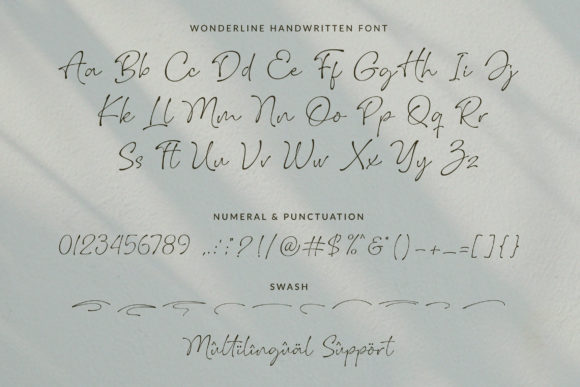 WONDERLINE HANDWRITTEN FONT
Aa Bb Cc Dd Ee Ff Gg Hh Ii Jj
Kk Ll Mm Nn Oo Pp Qq Rr
Ss Tt Uu Vv Ww Xx Yy Zz
NUMERAL & PUNCTUATION
0123456789 .,:;"?!/@#$%^&*()-+_=[]{}
SWASH
Mûltïlîngüäl Sûppört